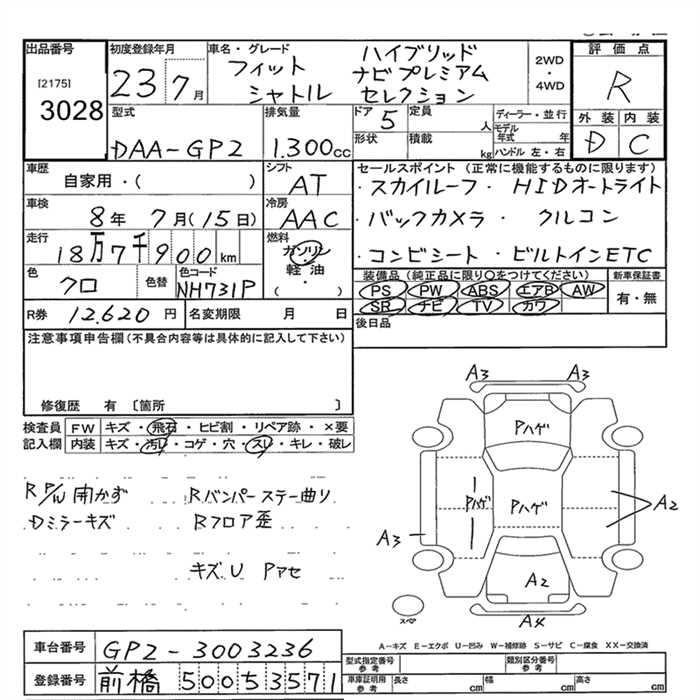 出品番号
[2175]
3028
初度登録年月
23 7月
車名・グレード
フィット
シャトル
ハイブリッド
ナビプレミアム
セレクション
2WD
・
4WD
評価点
R
外装 内装
D C
型式
DAA-GP2
排気量
1.300cc
ドア 5
定員 人
形状
積載 kg
ディーラー・並行
モデル年式 年
ハンドル 左・右
車歴
自家用・( )
シフト
AT
車検
8年 7月(15日)
冷房
AAC
走行
18万7千900km
燃料
ガソリン
軽油
( )
色
クロ
色替
色コード
NH731P
R券 12.620円
名変期限 月 日
セールスポイント(正常に機能するものに限ります)
・スカイルーフ ・HIDオートライト
・バックカメラ ・クルコン
・コンビシート ・ビルトインETC
装備品(純正品に限り○をつけてください)
PS PW ABS エアB AW
SR ナビ TV カワ
新車保証書
有・無
後日品
注意事項申告欄(不具合内容等は具体的に記入して下さい)
修復歴 有 〔箇所 〕
検査員記入欄
FW キズ・飛石・ヒビ割・リペア跡・×要
内装 キズ・汚レ・コゲ・穴・スレ・キレ・破レ
R P/W 開かず
Dミラーキズ
Rバンパーステー曲り
Rフロア歪
キズU Pアセ
A3 A3
Pハゲ
Pハゲ
Pハゲ
A2
A3
A2
A4
スペア
A-キズ E-エクボ U-凹み W-補修跡 S-サビ C-腐食 XX-交換済
車台番号 GP2-3003236
登録番号 前橋 500 5 3571
型式指定番号 参考
類別区分番号 参考
車庫証明用 参考
長さ cm
幅 cm
高さ cm